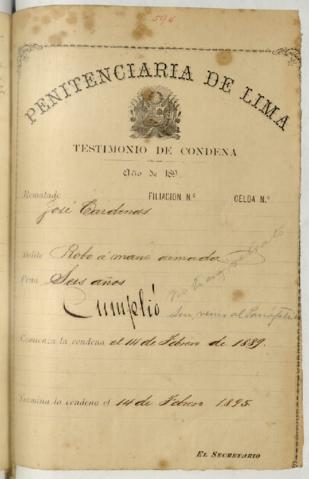 594
PENITENCIARIA DE LIMA
TESTIMONIO DE CONDENA
Año de 189
Rematado FILIACION N.º CELDA N.º
José Cárdenas
Delito Robo á mano armada
Pena Seis años
Cumplió
sin venir al Panóptico
Comienza la condena el 14 de Febrero de 1889.
Termina la condena el 14 de Febrero 1895.
EL SECRETARIO